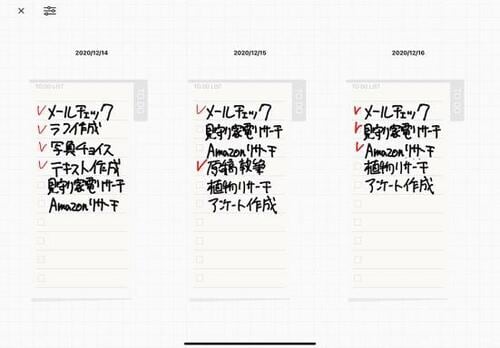 2020/12/14
TO DO LIST
TO DO
メールチェック
ラフ作成
写真チョイス
テキスト作成
見守り家電リサーチ
Amazonリサーチ
2020/12/15
TO DO LIST
TO DO
メールチェック
見守り家電リサーチ
Amazonリサーチ
原稿執筆
植物リサーチ
アンケート作成
2020/12/16
TO DO LIST
TO DO
メールチェック
見守り家電リサーチ
Amazonリサーチ
植物リサーチ
アンケート作成